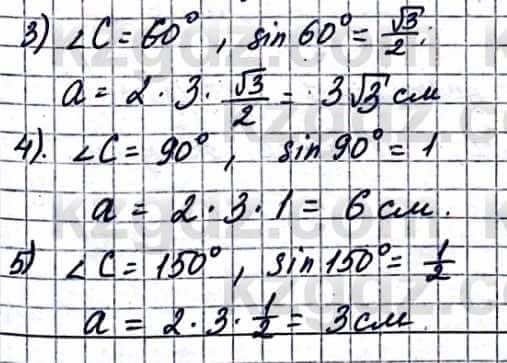 3) ∠C = 60°, sin 60° = √3/2;
a = 2 · 3 · √3/2 = 3√3 см
4). ∠C = 90°, sin 90° = 1
a = 2 · 3 · 1 = 6 см.
5) ∠C = 150°, sin 150° = 1/2
a = 2 · 3 · 1/2 = 3 см.